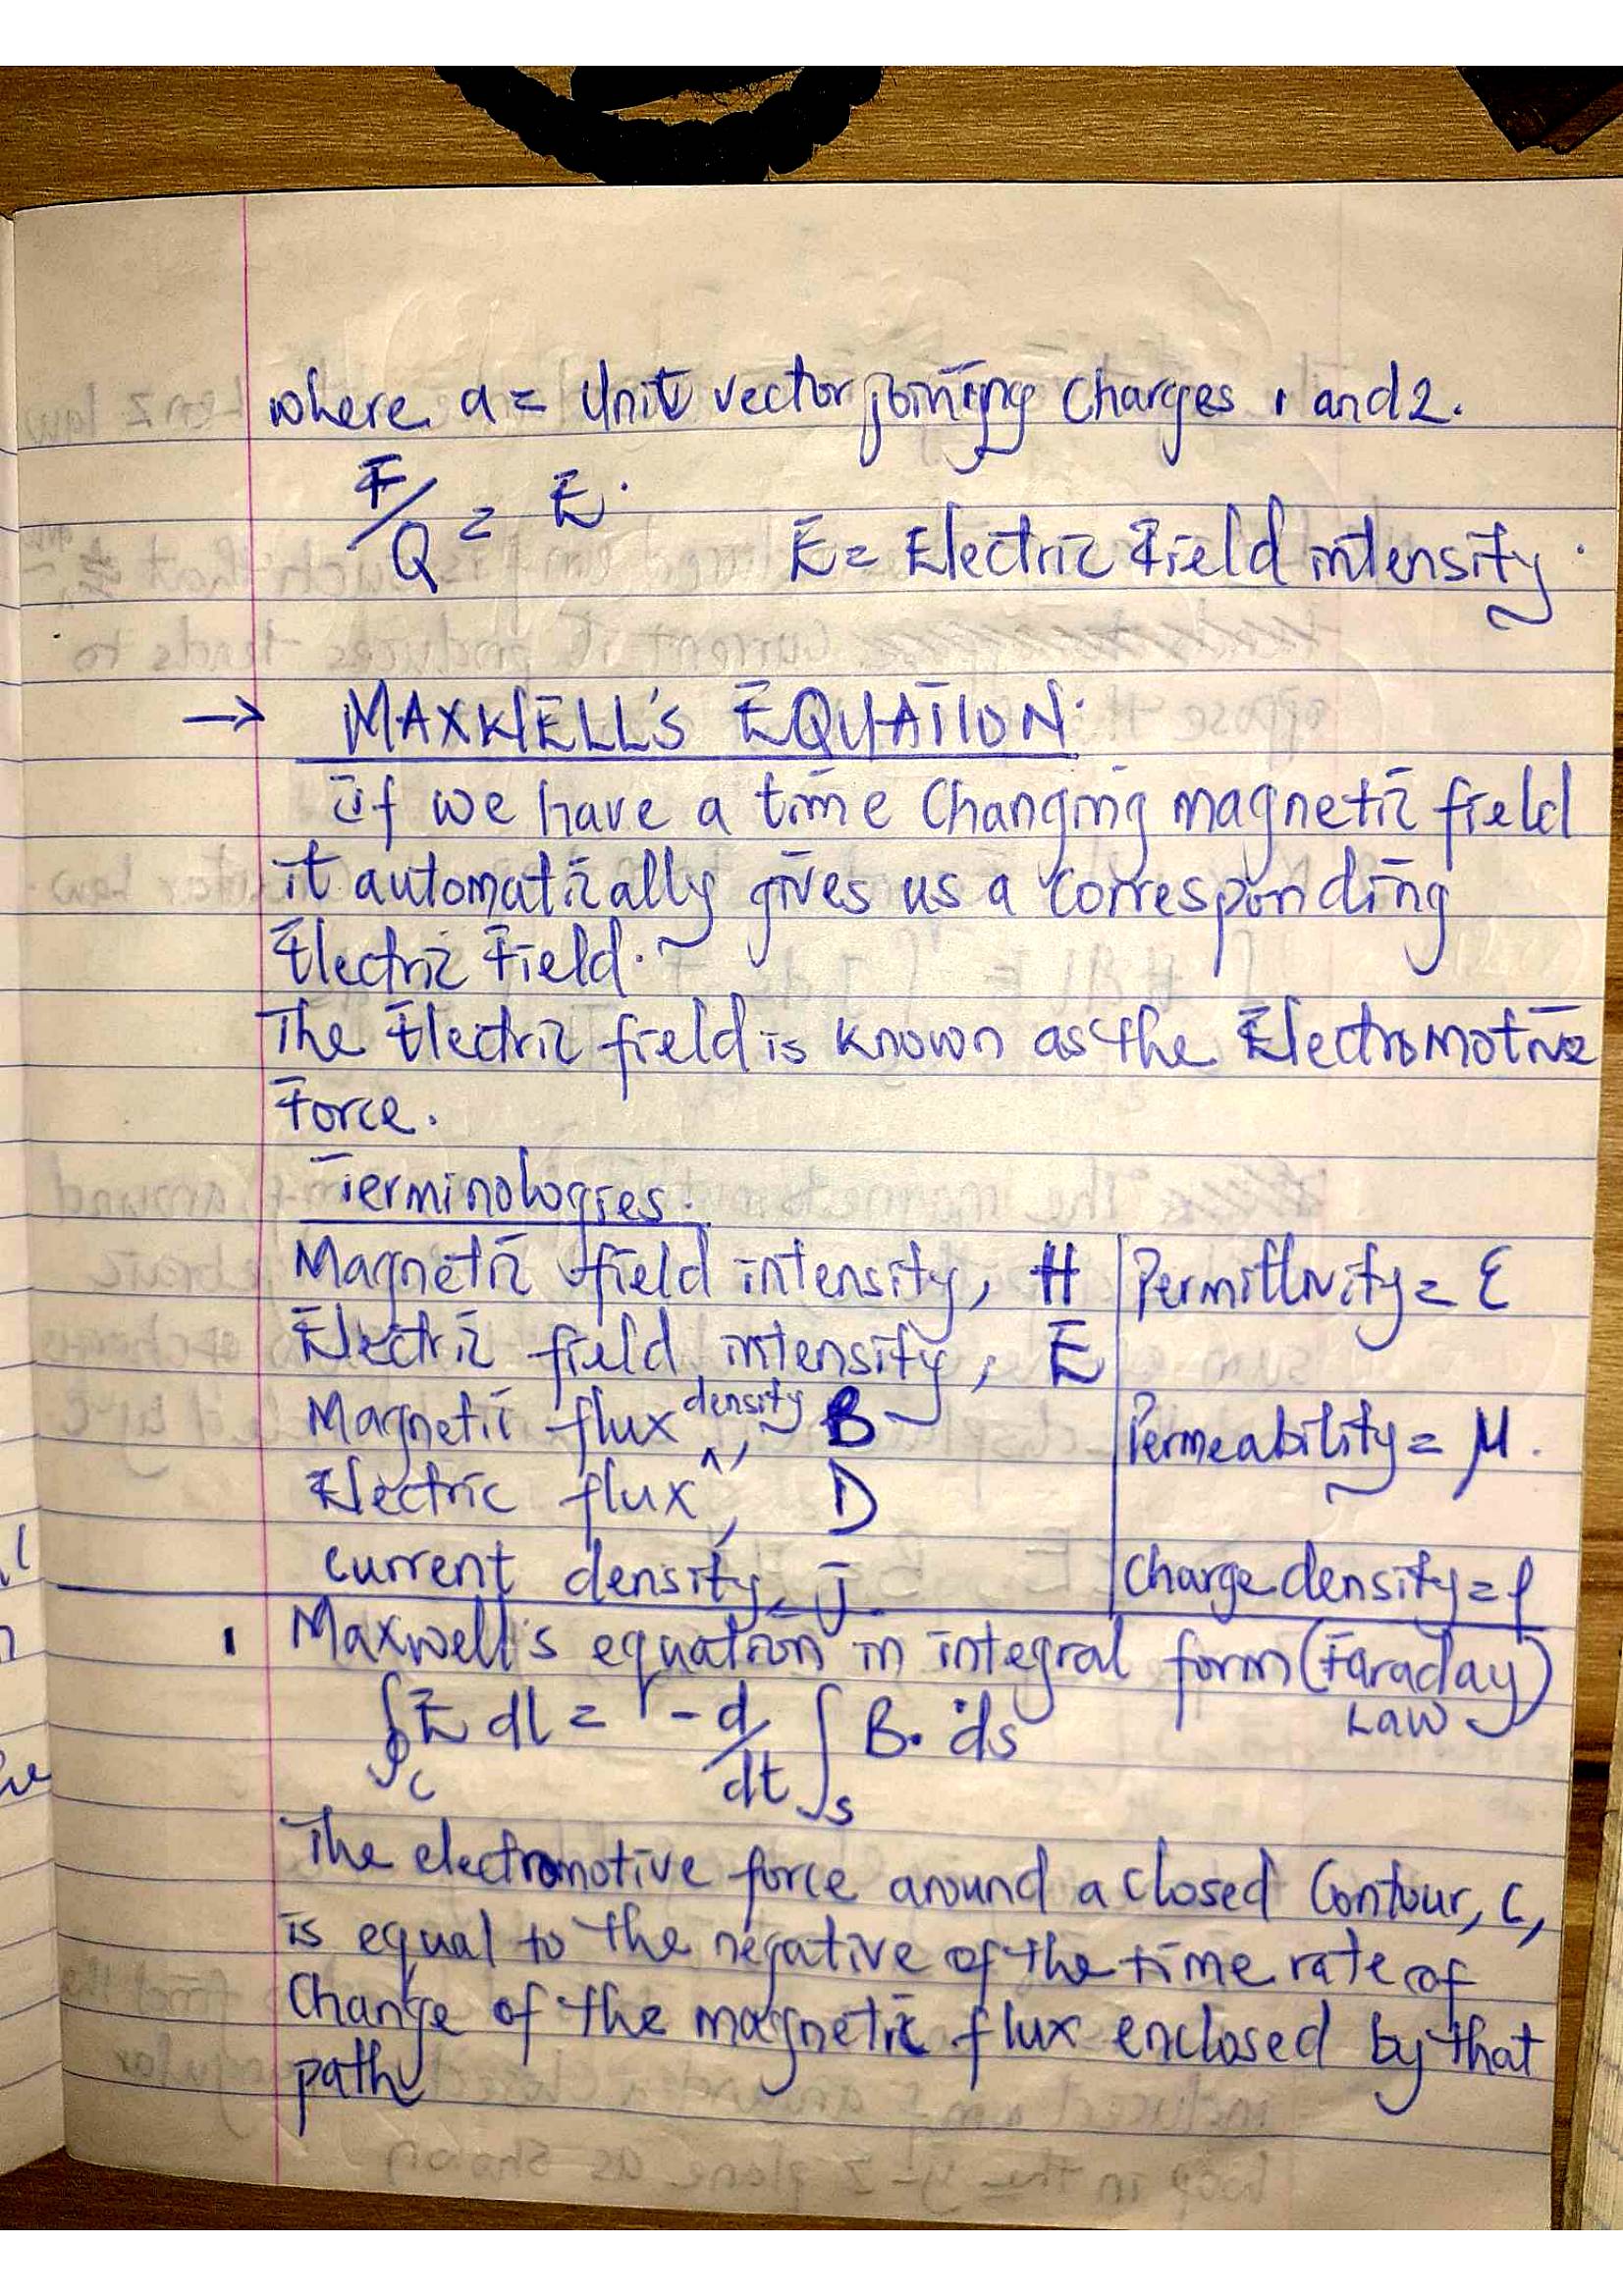 where a = Unit vector joining charges 1 and 2.
F/Q = E.
E = Electric Field intensity.
→ MAXWELL'S EQUATION.
If we have a time changing magnetic field
it automatically gives us a corresponding
Electric Field.
The Electric field is known as the Electromotive
Force.
Terminologies.
Magnetic field intensity, H | Permittivity = ε
Electric field intensity, E
Magnetic flux density, B | Permeability = μ.
Electric flux, D
current density, J | Charge density = ρ
1 Maxwell's equation in integral form (Faraday Law)
∮c E dl = -d/dt ∫s B. ds
The electromotive force around a closed contour, C,
is equal to the negative of the time rate of
Change of the magnetic flux enclosed by that
path